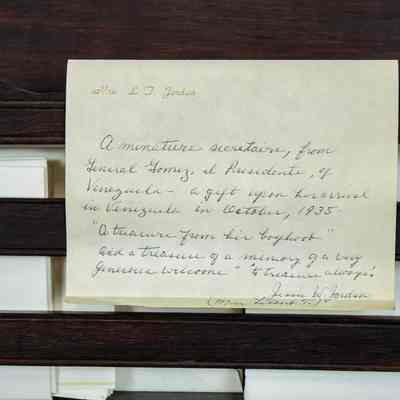 Mrs. L. T. Jordan
A minature secretaire, from
General Gomez, el Presidente, of
Venezuela - a gift upon her arrival
in Venezuela in October, 1935.
"A treasure from his boyhood"
and a treasure of a memory of a very
generous welcome " to treasure always".
Jessie W. Jordan
(Mrs.